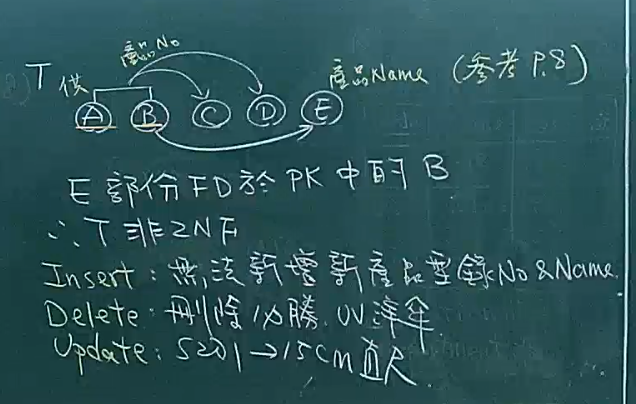 產品No
T 供 產品Name (參考 P.8)
A B C D E
E 部份 FD於 PK 中的 B
∴ T 非 2NF
Insert: 無法新增新產品型錄No&Name.
Delete: 刪除 必勝. UV洋傘
Update: S201→15cm直尺.